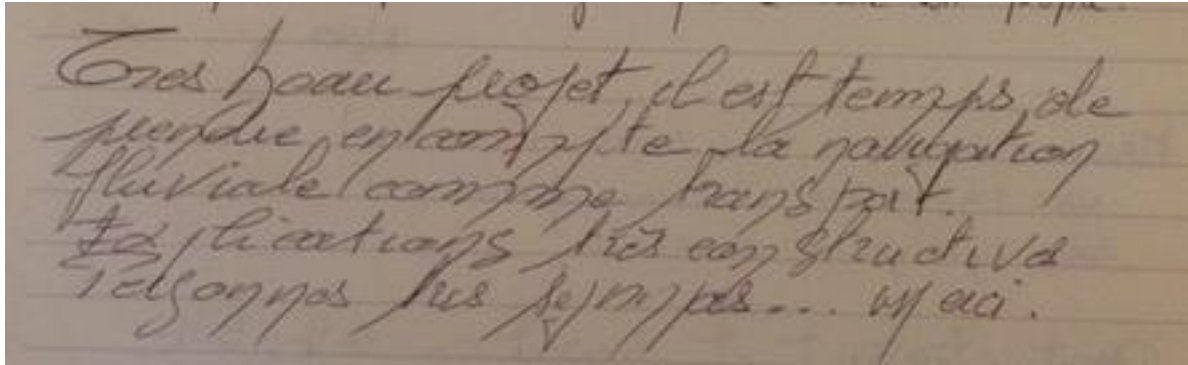 Très beau projet, il est temps de
prendre en compte la navigation
fluviale comme transport.
Explications très constructives
Personnes très sympas... merci.